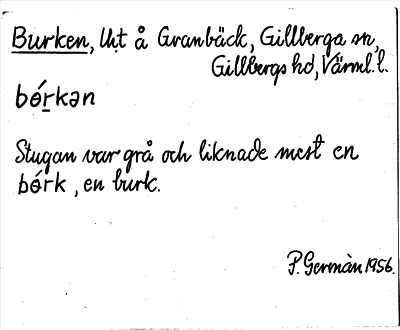 Burken, lht å Granbäck, Gillberga sn,
Gillbergs hd, Värml. l.
bǿrkən
Stugan var grå och liknade mest en
børk, en burk.
P. Germàn 1956.